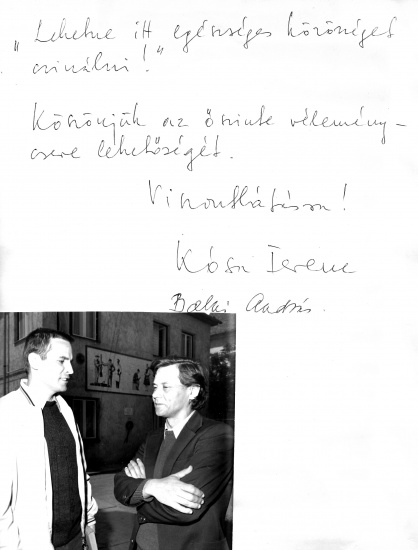 „Lehetne itt egészséges közösséget
csinálni!"
Köszönjük az őszinte vélemény-
csere lehetőségét.
Viszontlátásra!
Kósa Ferenc
András